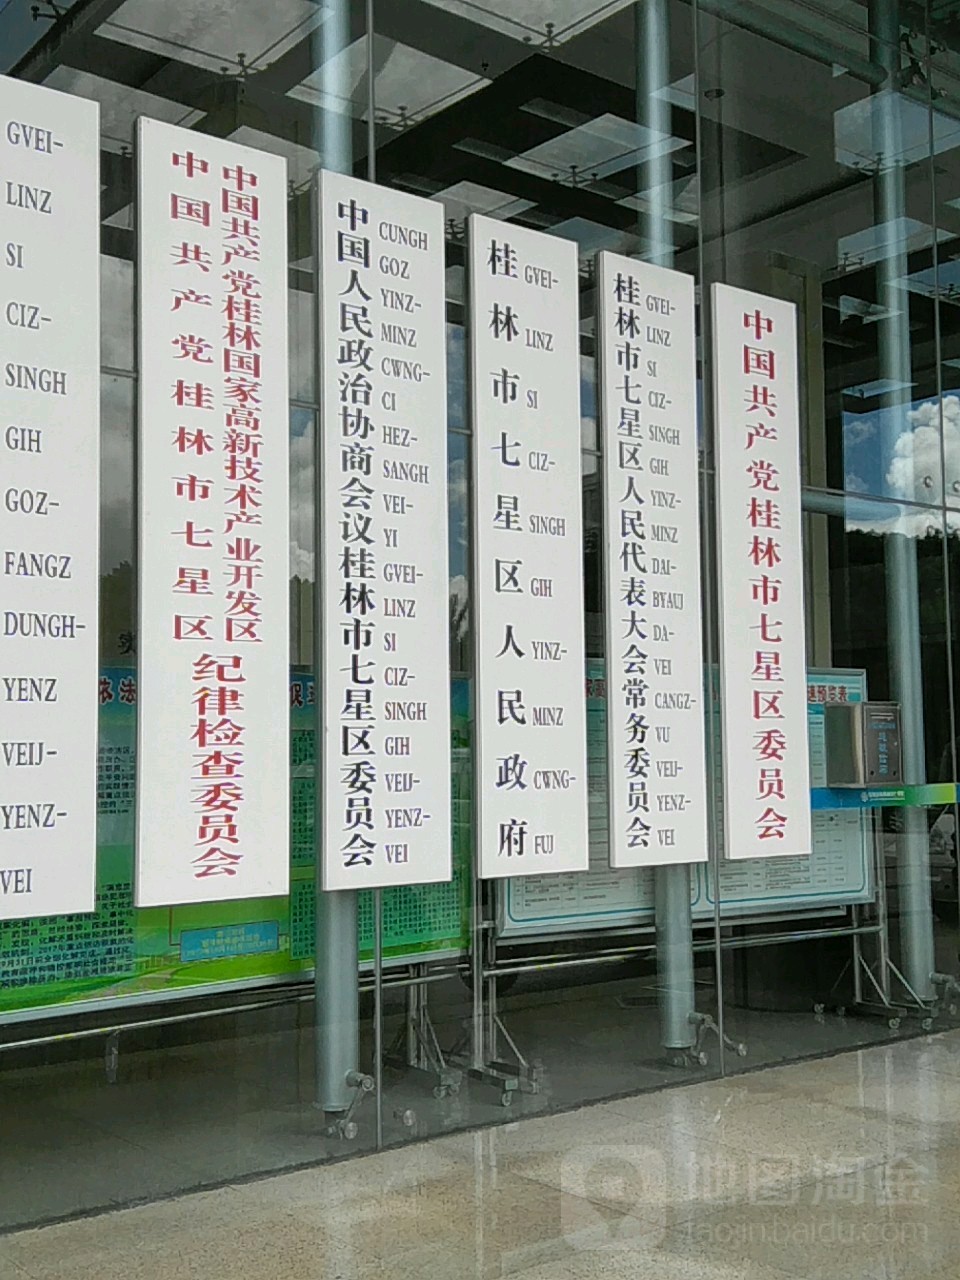 GVEI-
LINZ
SI
CIZ-
SINGH
GIH
GOZ-
FANGZ
DUNGH-
YENZ
VEIJ-
YENZ-
VEI
中国共产党桂林国家高新技术产业开发区
中国共产党桂林市七星区
纪律检查委员会
中国人民政治协商会议桂林市七星区委员会
CUNGH
GOZ
YINZ-
MINZ
CWNG-
CI
HEZ-
SANGH
VEI-
YI
GVEI-
LINZ
SI
CIZ-
SINGH
GIH
VEIJ-
YENZ-
VEI
桂林市七星区人民政府
GVEI-
LINZ
SI
CIZ-
SINGH
GIH
YINZ-
MINZ
CWNG-
FUJ
桂林市七星区人民代表大会常务委员会
GVEI-
LINZ
SI
CIZ-
SINGH
GIH
YINZ-
MINZ
DAI-
BYAUJ
DA-
VEI
CANGZ-
VU
VEIJ-
YENZ-
VEI
中国共产党桂林市七星区委员会
地图淘金
taojin.baidu.com